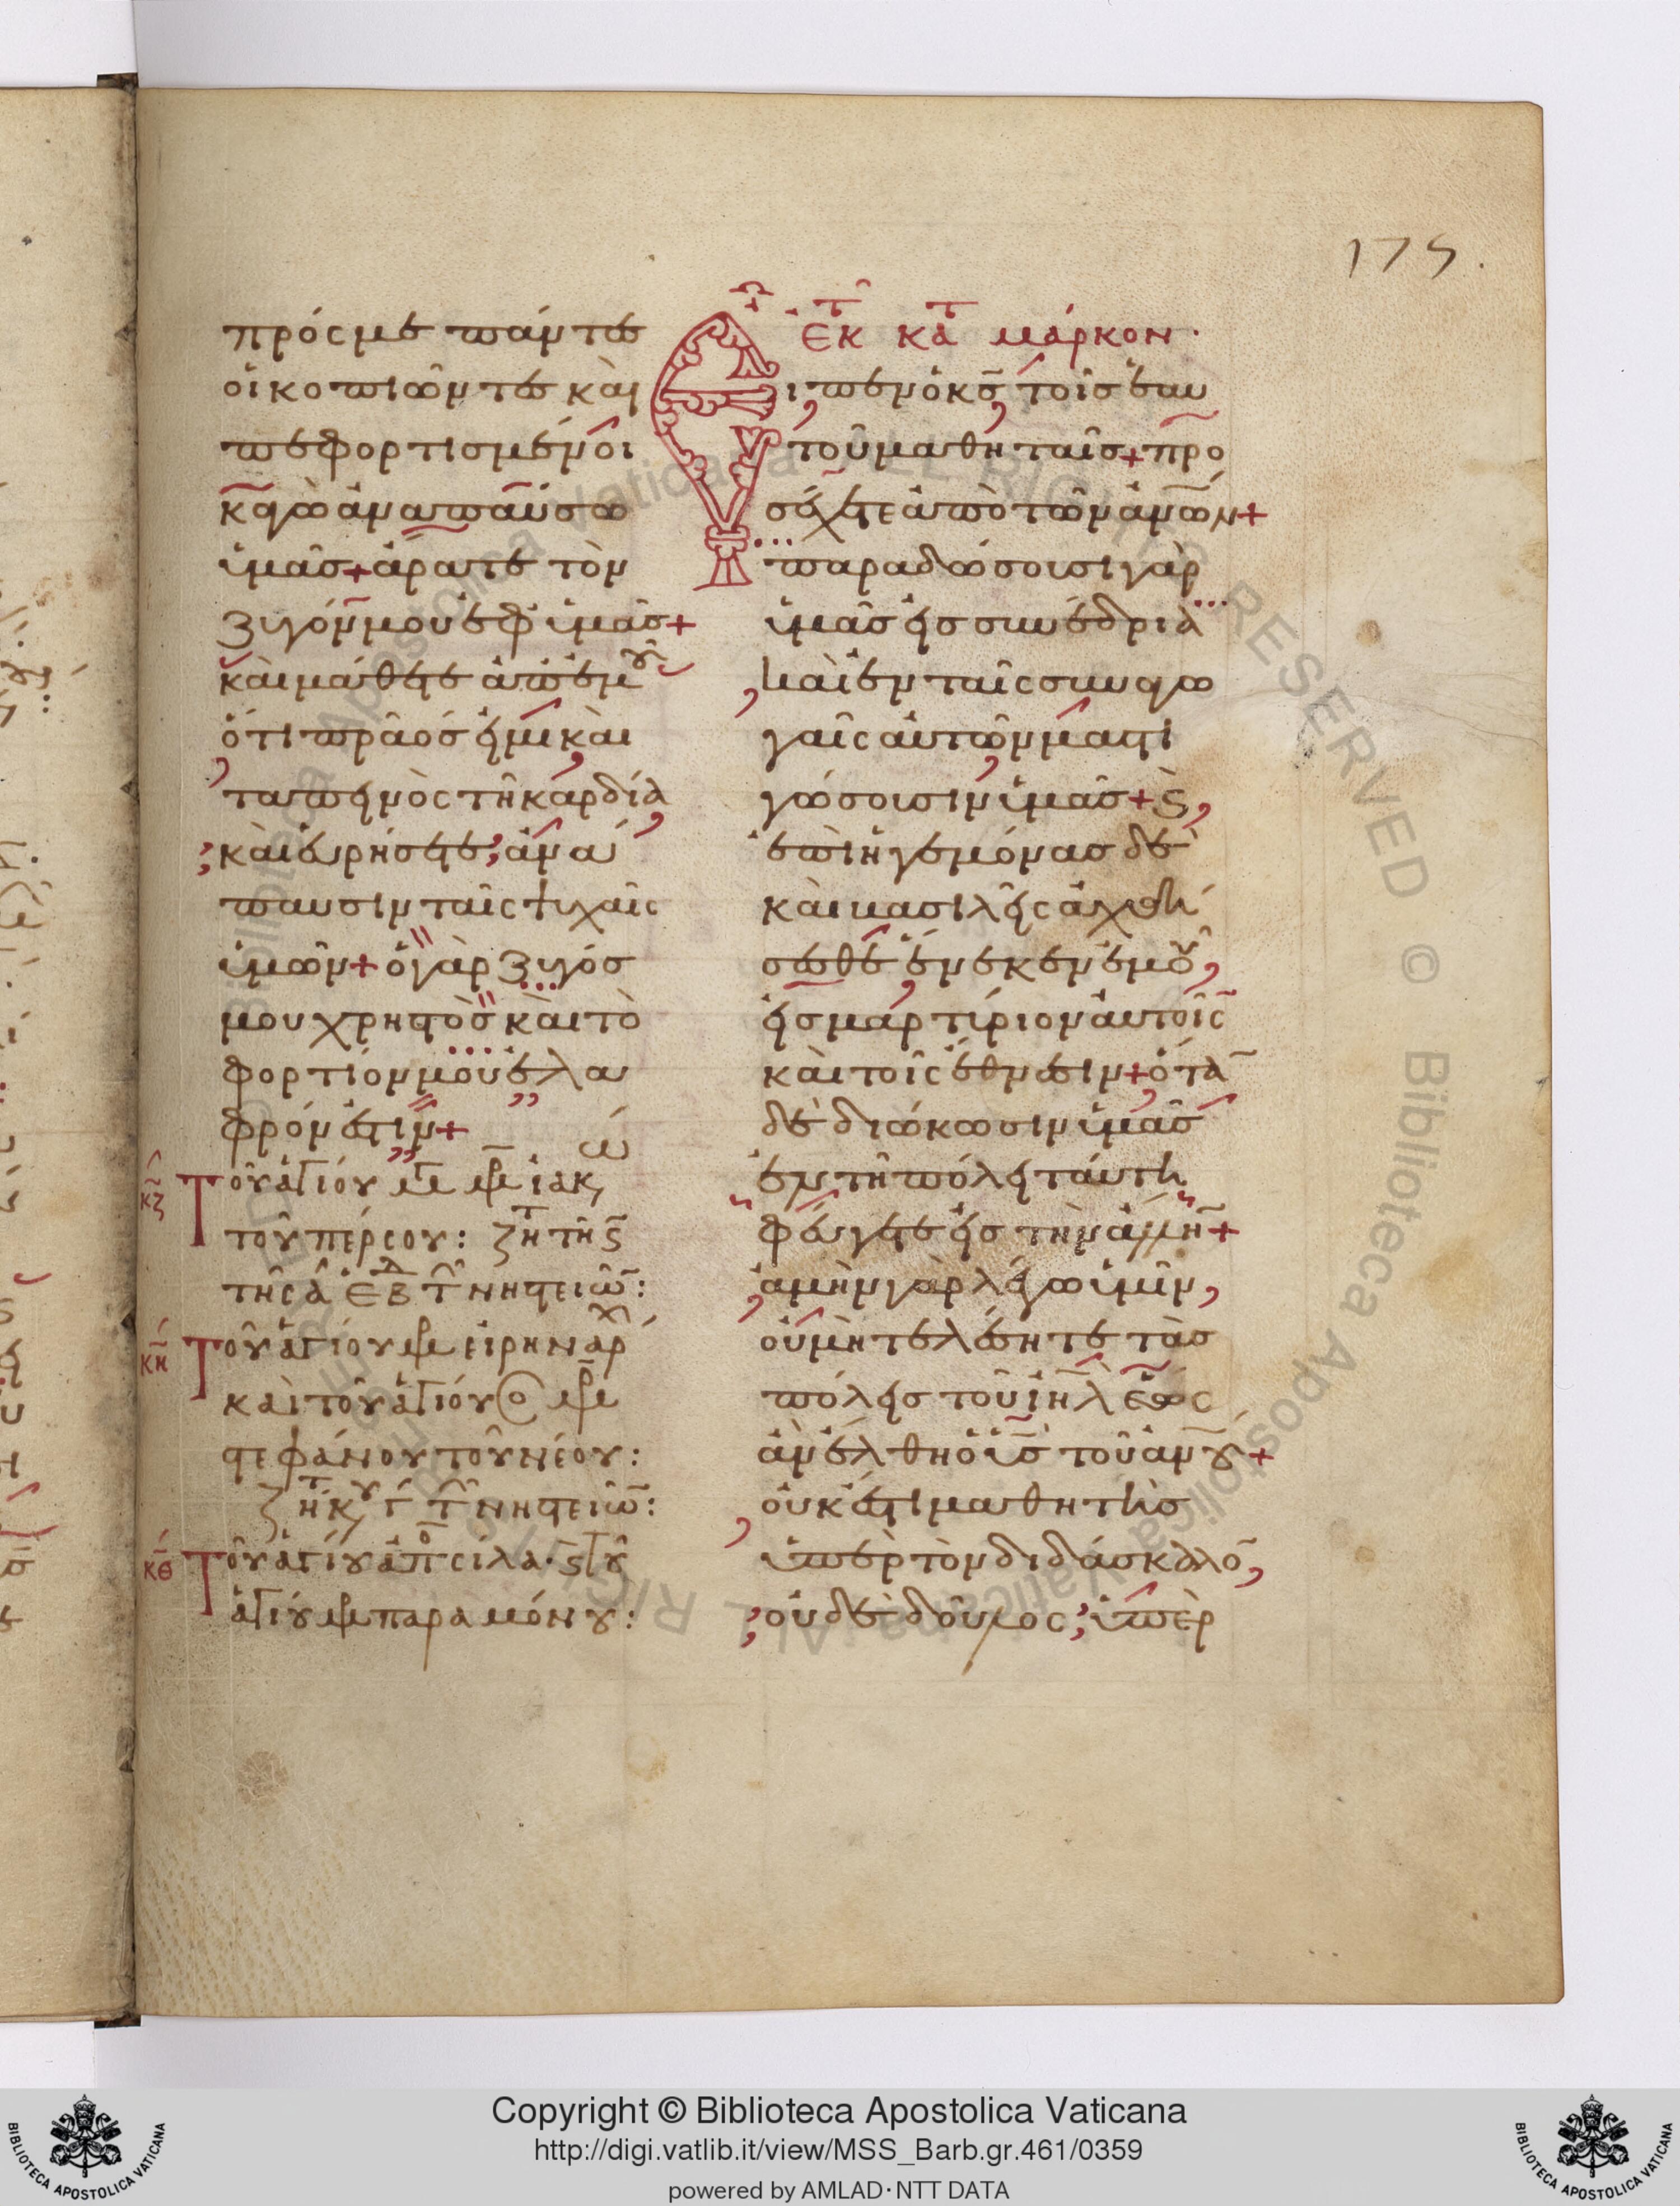 175.
πρός με πάντες
οἱ κοπιῶντες καὶ
πεφορτισμένοι
κἀγὼ ἀναπαύσω
ὑμᾶς+ ἄρατε τὸν
ζυγόν μου ἐφ ὑμᾶς+
καὶ μάθετε ἀπ ἐμοῦ
ὅτι πρᾶος εἰμι καὶ
ταπεινὸς τῆ καρδία
καὶ εὑρήσετε, ἀνά
παυσιν ταῖς ψυχαῖς
ὑμῶν+ ὁ γὰρ ζυγός
μου χρηστὸς καὶ τὸ
φορτίον μου ἐλα
φρόν ἐστιν+
Τοῦ ἁγίου ἰακώ
τοῦ πέρσου: ζητ τῆ ς
τῆς α ἑβδ τ νηστειῶ:
κη Τοῦ ἁγίου εἰρηναρχ
καὶ τοῦ ἁγίου
στεφάνου τοῦ νέου:
ζητ κυ γ τ νηστειῶ:
κθ Τοῦ ἁγίου ἀπο σίλα· ς τοῦ
ἁγίου παραμόνου:
ἐκ κατ μάρκον·
Εἶπεν ὁ κς, τοῖς ἑαυ
τοῦ μαθηταῖς+ προ
σέχετε ἀπὸ τῶν ἀνων+
παραδώσουσι γὰρ
ὑμᾶς εἰς συνέδρια
καὶ ἐν ταῖς συναγω
γαῖς αὐτῶν μαστι
γώσουσιν ὑμᾶς+ ς,
ἐπὶ ἡγεμόνας δὲ
καὶ βασιλεῖς ἀχθή
σεσθε ἕνεκεν ἐμοῦ,
εἰς μαρτύριον αὐτοῖς
καὶ τοῖς ἔθνεσιν+ ὅτα
δὲ διώκωσιν ὑμᾶς
ἐν τῆ πόλει ταύτη
φεύγετε εἰς τὴν ἄλλη+
ἀμὴν γὰρ λέγω ὑμῖν,
οὐ μὴ τελέσητε τὰς
πόλεις τοῦ ιηλ ἕως
ἂν ἔλθη ὁ υἱς τοῦ ἀνου+
οὐκ ἔστι μαθητὴς
ὑπὲρ τὸν διδάσκαλο,
οὐδὲ δοῦλος, ὑπὲρ
Copyright © Biblioteca Apostolica Vaticana
http://digi.vatlib.it/view/MSS_Barb.gr.461/0359
powered by AMLAD·NTT DATA
BIBLIOTECA APOSTOLICA VATICANA
BIBLIOTECA APOSTOLICA VATICANA